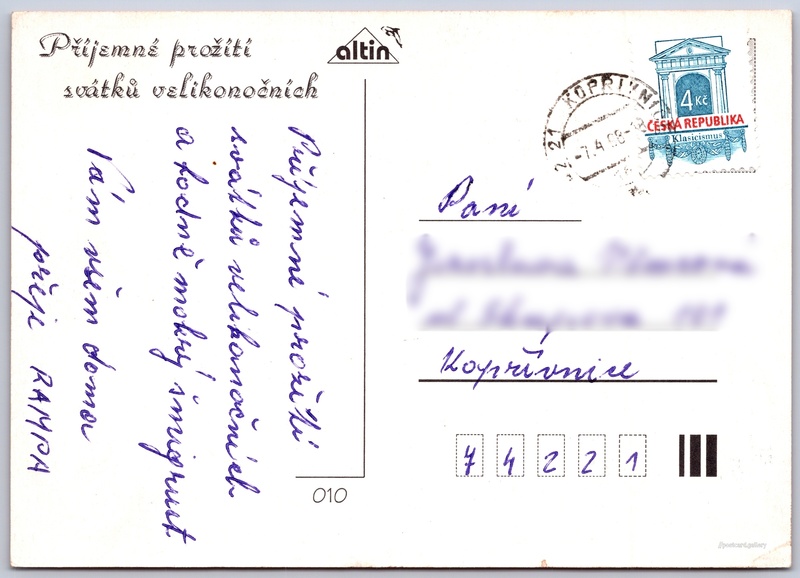 Příjemné prožití
svátků velikonočních
altin
Příjemné prožití
svátků velikonočních
a hodně mokrý šmigrust
Vám všem doma
přeje RAMPA
010
742 21 KOPŘIVNI
-7.4.98-8
4 Kč
ČESKÁ REPUBLIKA
Klasicismus
Paní
Kopřivnice
7 4 2 2 1